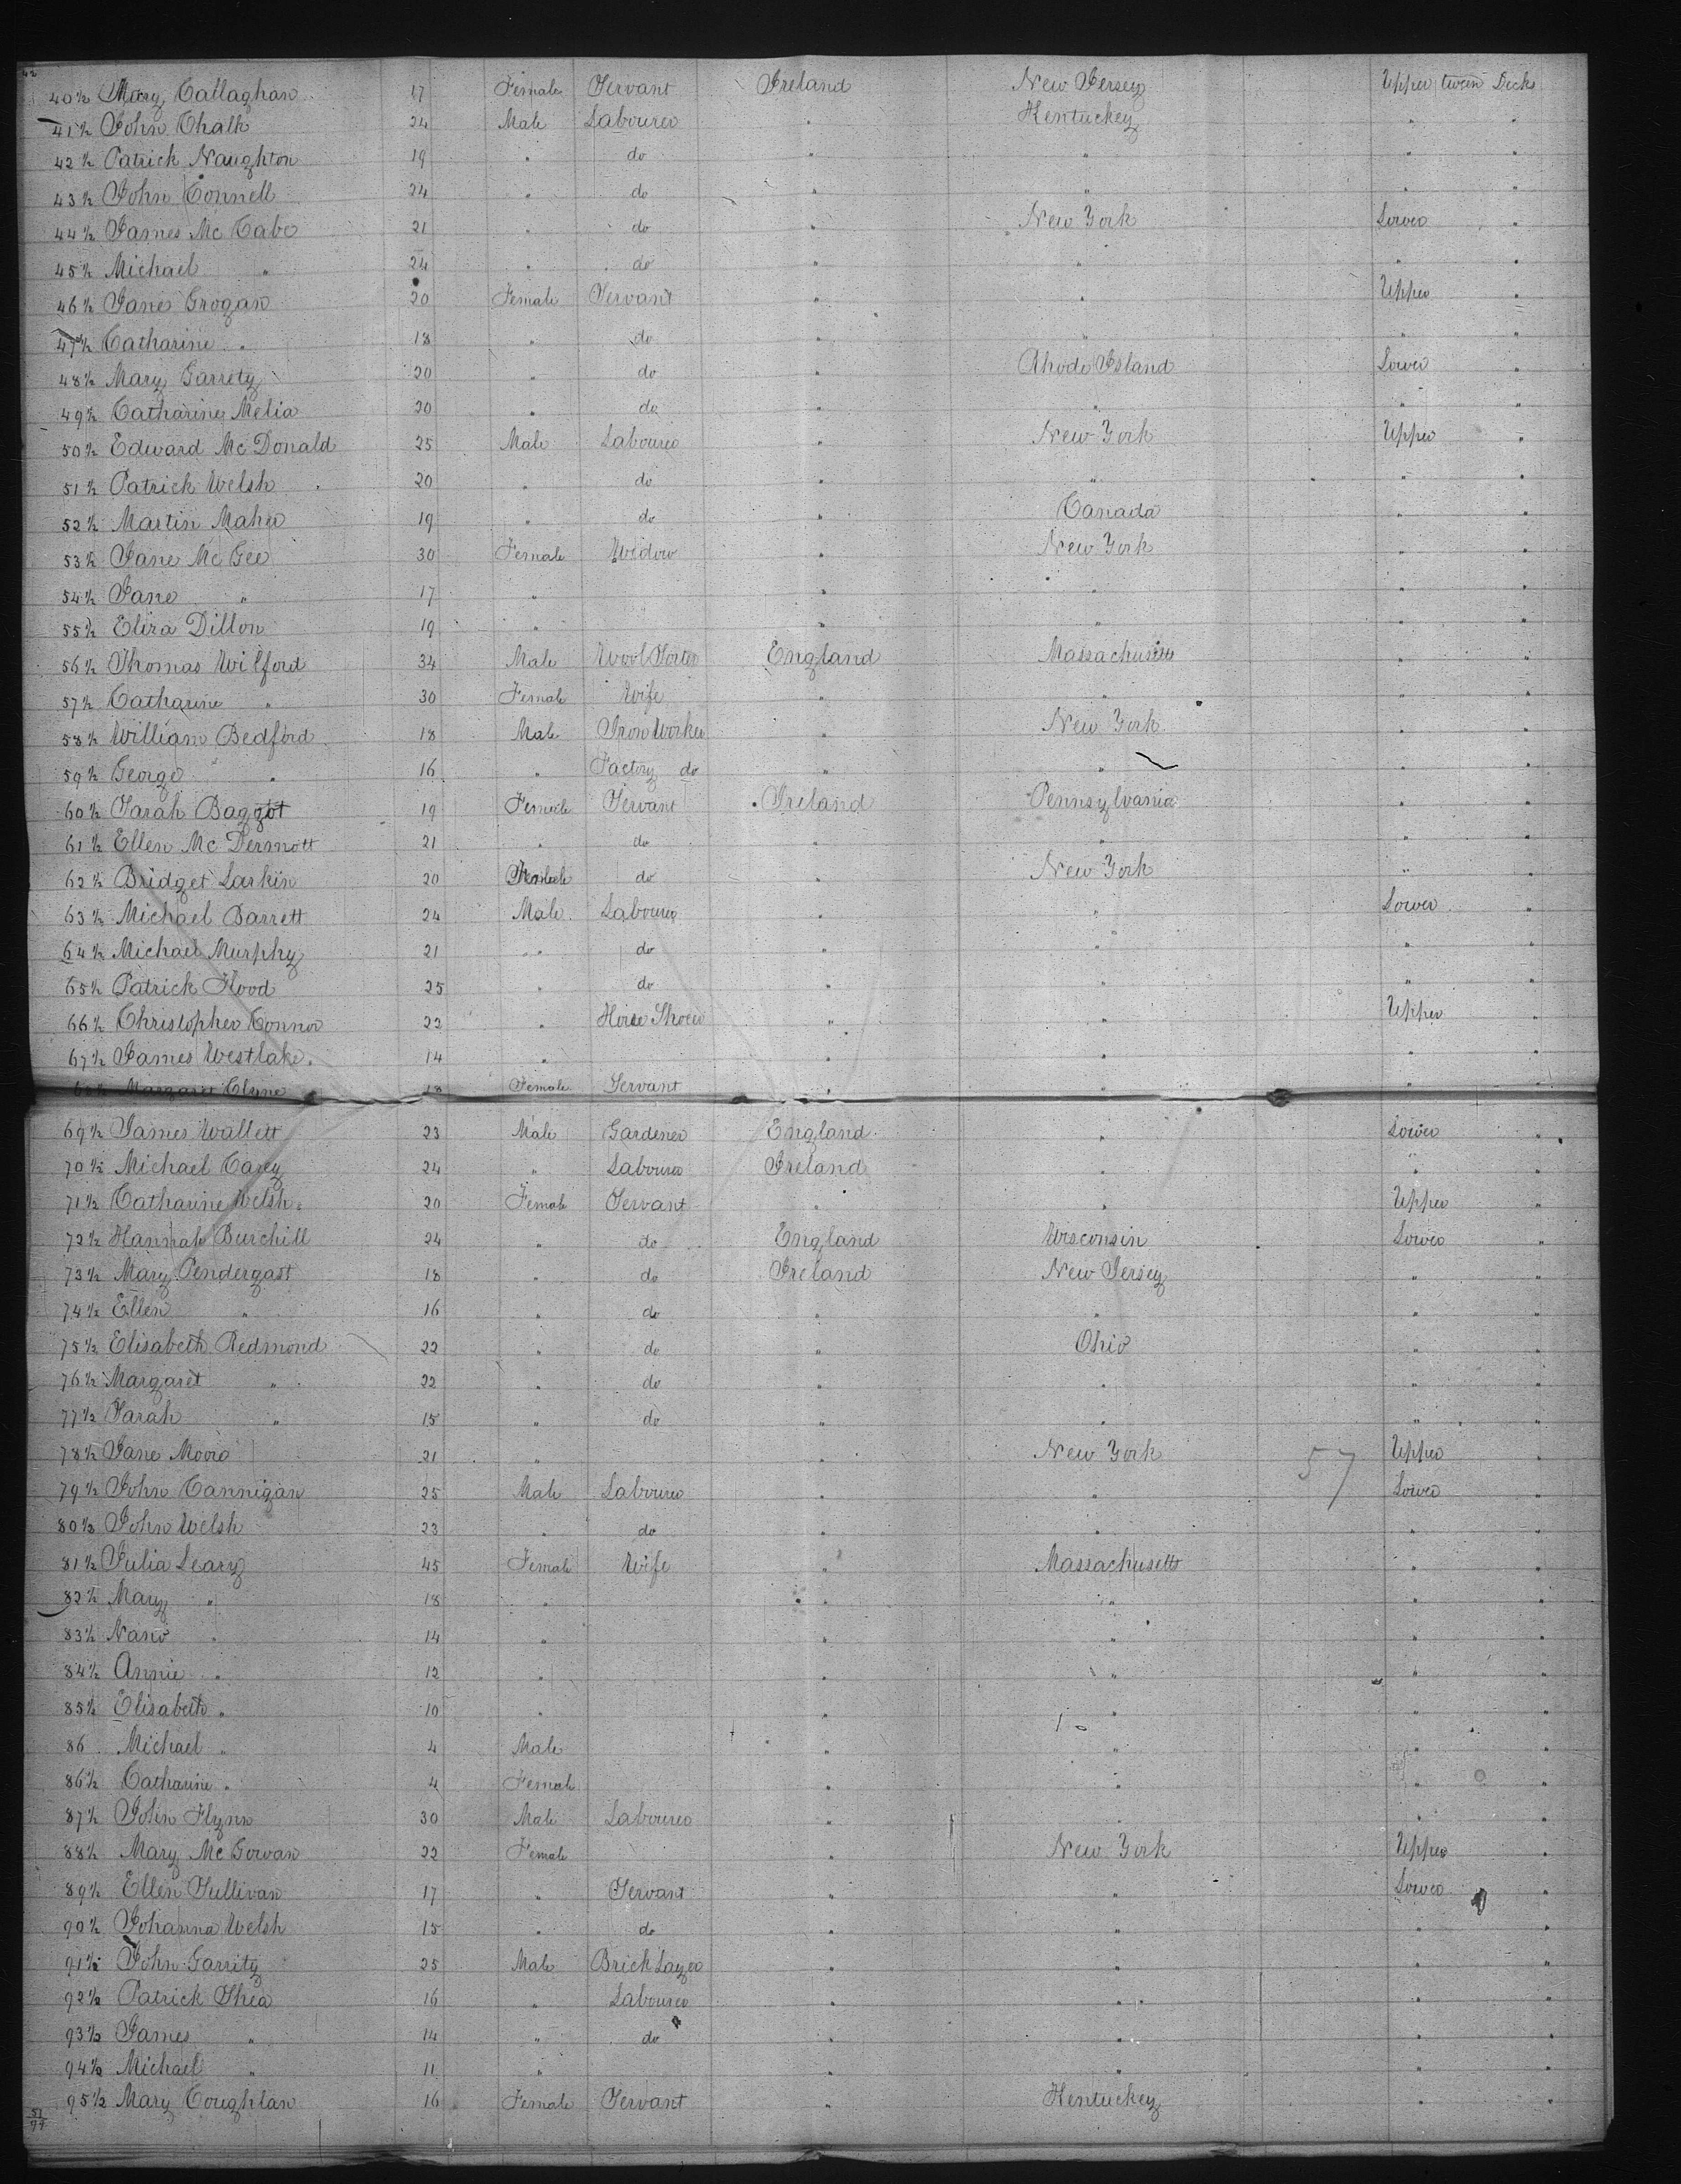 42
40½ Mary Callaghan 17 Female Servant Ireland New Jersey Upper tween Decks
41½ John Chalk 24 Male Labourer " Kentuckey " "
42½ Patrick Naughton 19 " do " " " "
43½ John Connell 24 " do " " " "
44½ James Mc Cabe 21 " do " New York Lower "
45½ Michael " 24 " do " " " "
46½ Jane Grogan 20 Female Servant " " Upper "
47½ Catharine " 18 " do " " " "
48½ Mary Garrety 20 " do " Rhode Island Lower "
49½ Catharine Melia 20 " do " " " "
50½ Edward Mc Donald 25 Male Labourer " New York Upper "
51½ Patrick Welsh 20 " do " " " "
52½ Martin Maher 19 " do " Canada " "
53½ Jane Mc Gee 30 Female Widow " New York " "
54½ Jane " 17 " " " " "
55½ Eliza Dillon 19 " " " " "
56½ Thomas Wilford 34 Male Wool Sorter England Massachusetts " "
57½ Catharine " 30 Female Wife " " " "
58½ William Bedford 18 Male Iron Worker " New York " "
59½ George " 16 " Factory do " " " "
60½ Sarah Baggot 19 Female Servant Ireland Pennsylvania " "
61½ Ellen Mc Dermott 21 " do " " " "
62½ Bridget Larkin 20 Female do " New York " "
63½ Michael Barrett 24 Male Labourer " " Lower "
64½ Michael Murphy 21 " do " " " "
65½ Patrick Flood 25 " do " " " "
66½ Christopher Connor 22 " Horse Shoer " " Upper "
67½ James Westlake 14 " " " " "
68½ Margaret Clyne 18 Female Servant " " " "
69½ James Wallett 23 Male Gardener England " Lower "
70½ Michael Carey 24 " Labourer Ireland " " "
71½ Catharine Welsh 20 Female Servant " " Upper "
72½ Hannah Burchill 24 " do England Wisconsin Lower "
73½ Mary Pendergast 18 " do Ireland New Jersey " "
74½ Ellen " 16 " do " " " "
75½ Elisabeth Redmond 22 " do " Ohio " "
76½ Margaret " 22 " do " " " "
77½ Sarah " 15 " do " " " "
78½ Jane Moore 21 " " New York 57 Upper "
79½ John Cannigan 25 Male Labourer " " Lower "
80½ John Welsh 23 " do " " " "
81½ Julia Leary 45 Female Wife " Massachusetts " "
82½ Mary " 18 " " " " "
83½ Nano " 14 " " " " "
84½ Annie " 12 " " " " "
85½ Elisabeth " 10 " " " " "
86 Michael " 4 Male " " " "
86½ Catharine " 4 Female " " " "
87½ John Flynn 30 Male Labourer " " " "
88½ Mary Mc Gowan 22 Female " New York Upper "
89½ Ellen Sullivan 17 " Servant " " Lower "
90½ Johanna Welsh 15 " do " " " "
91½ John Garrity 25 Male Brick Layer " " " "
92½ Patrick Shea 16 " Labourer " " " "
93½ James " 14 " do " " " "
94½ Michael " 11 " " " " "
95½ Mary Coughlan 16 Female Servant " Kentuckey " "